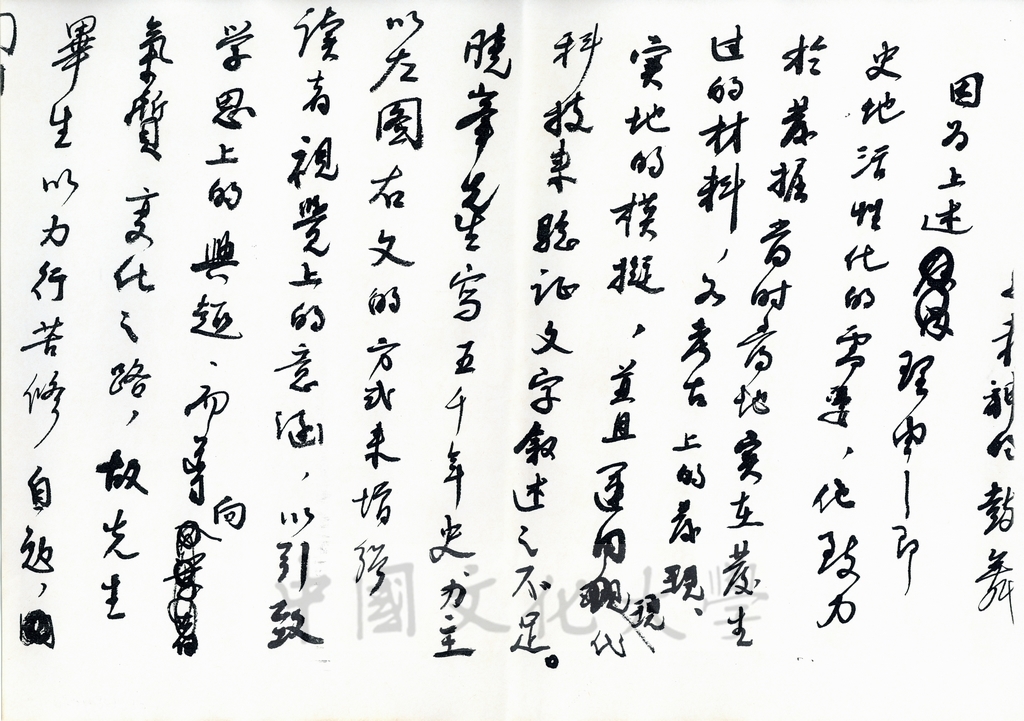 鼓舞
因为上述理由——即
史地活性化的需要，他致力
於發掘當時當地實在發生
过的材料，如考古上的發現、
實地的模擬，並且運用現代
科技来驗证文字叙述之不足。
曉峯先生寫五千年史为主
以左圖右文的方式来增強
读者視覺上的意涵，以引致
学思上的興趣、而導向
氣質变化之路，故先生
畢生以力行苦修自勉，
中國文化大學